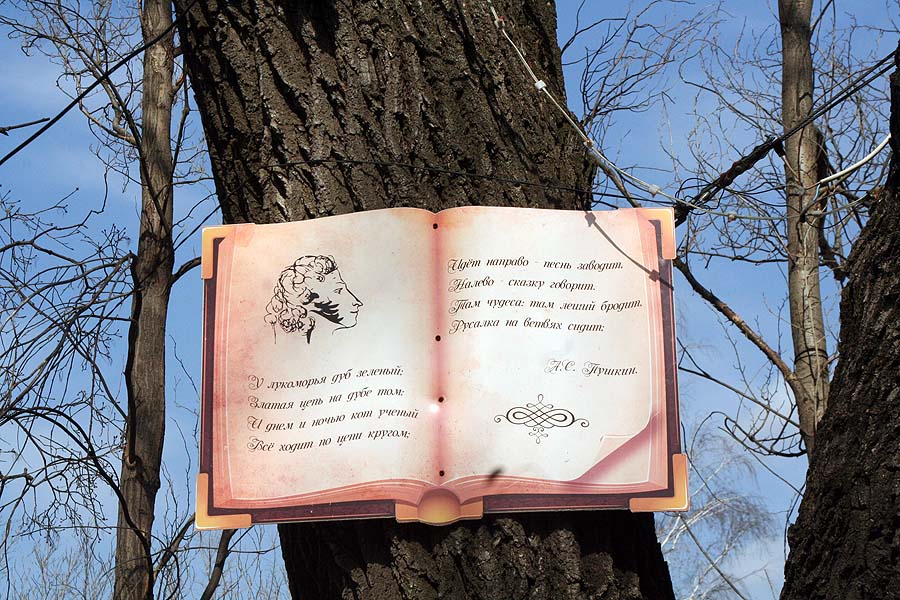 У лукоморья дуб зеленый;
Златая цепь на дубе том:
И днем и ночью кот ученый
Всё ходит по цепи кругом;
Идёт направо - песнь заводит.
Налево - сказку говорит.
Там чудеса: там леший бродит.
Русалка на ветвях сидит;
А.С. Пушкин.